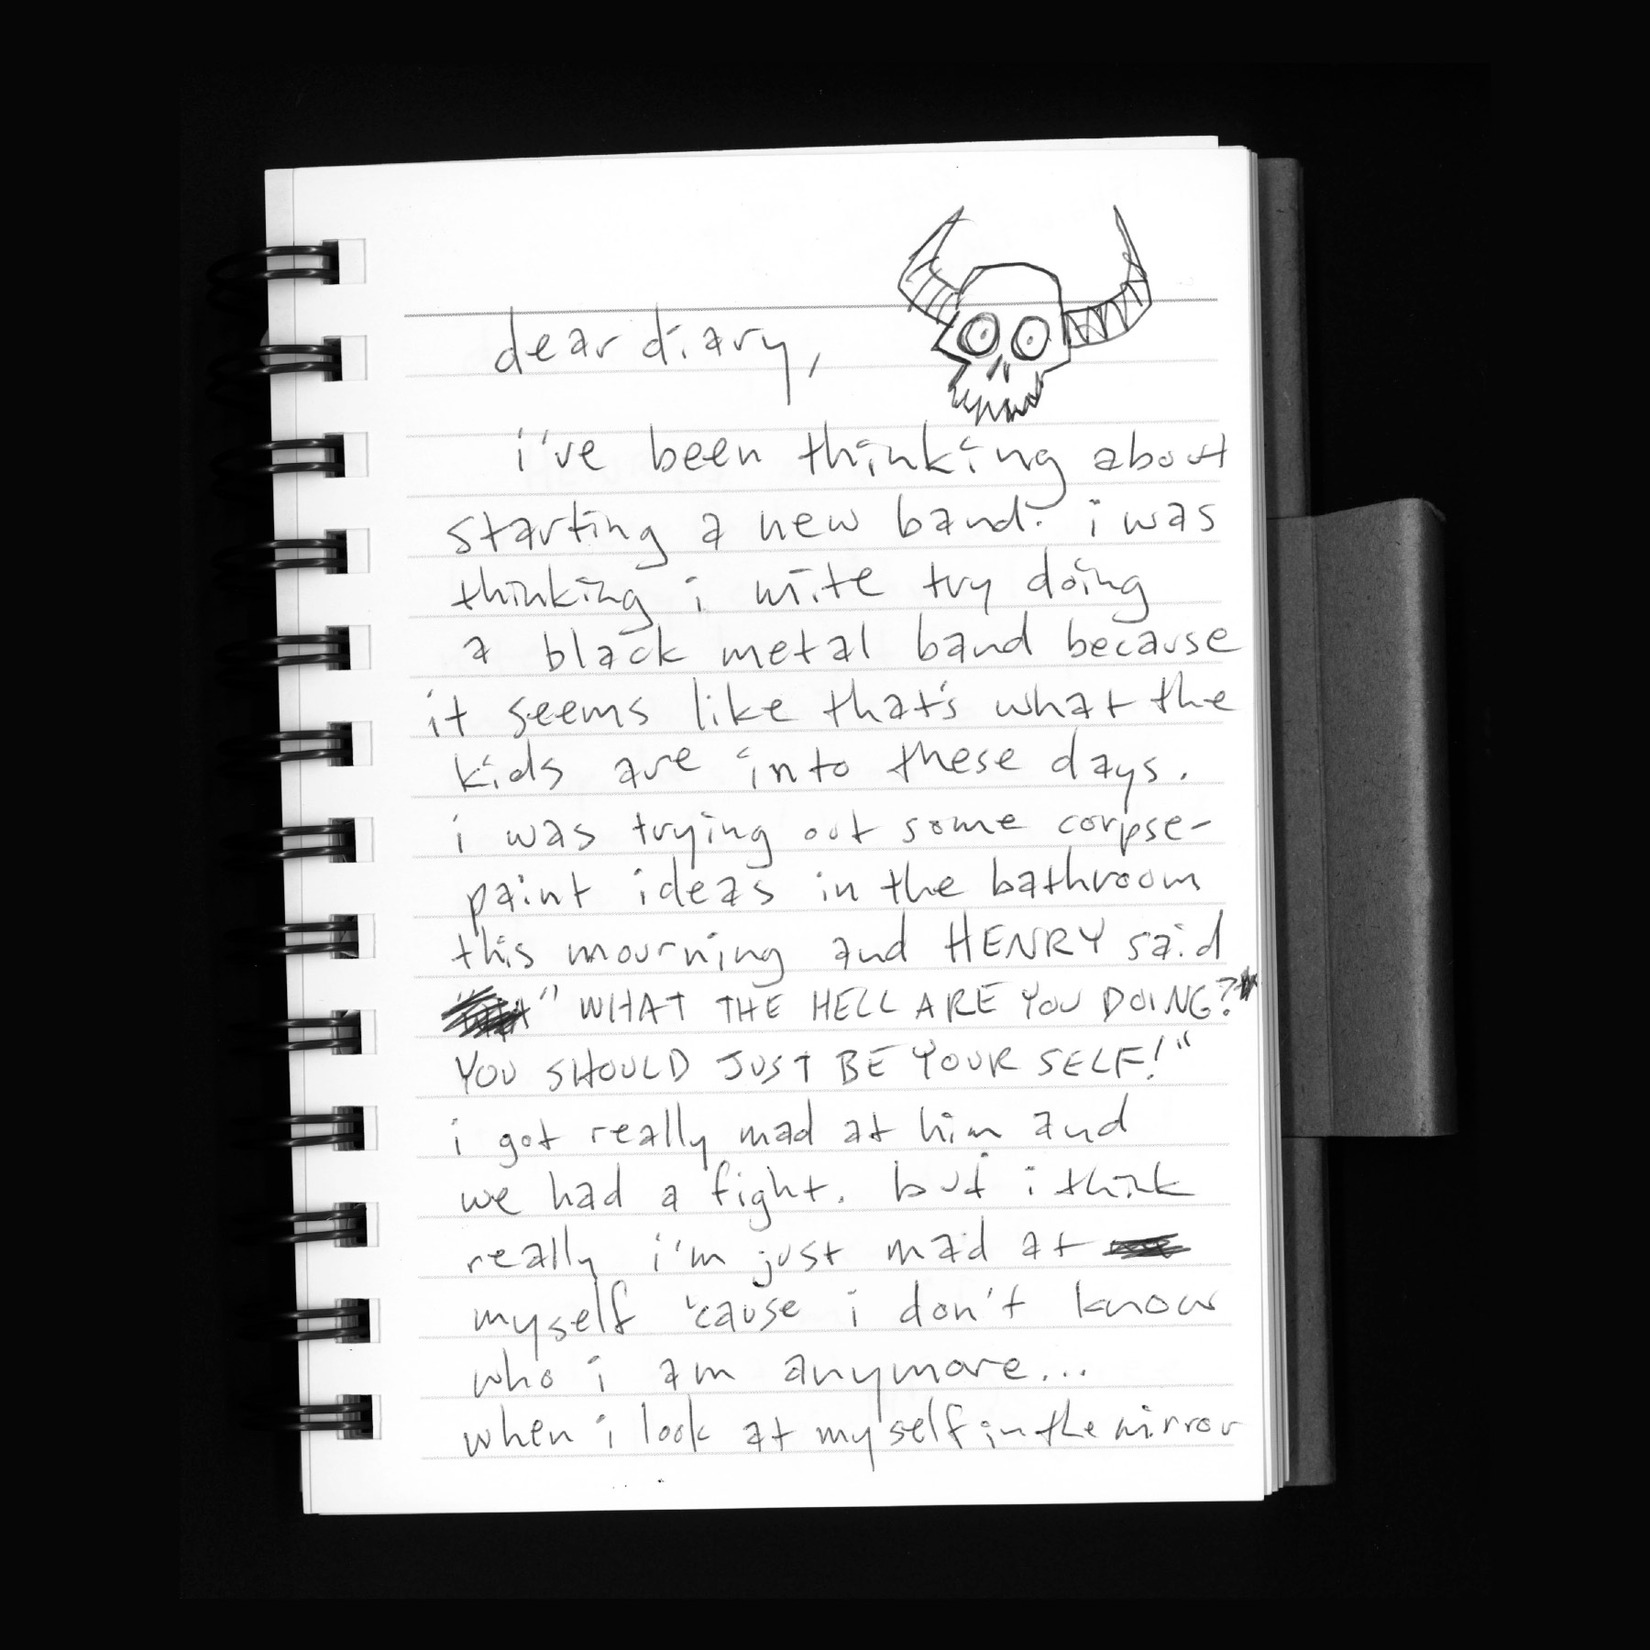 dear diary,
i've been thinking about
starting a new band. i was
thinking i mite try doing
a black metal band because
it seems like that's what the
kids are into these days.
i was trying out some corpse-
paint ideas in the bathroom
this mourning and HENRY said
" WHAT THE HELL ARE YOU DOING?
YOU SHOULD JUST BE YOUR SELF!"
i got really mad at him and
we had a fight. but i think
really i'm just mad at
myself 'cause i don't know
who i am anymore...
when i look at myself in the mirror